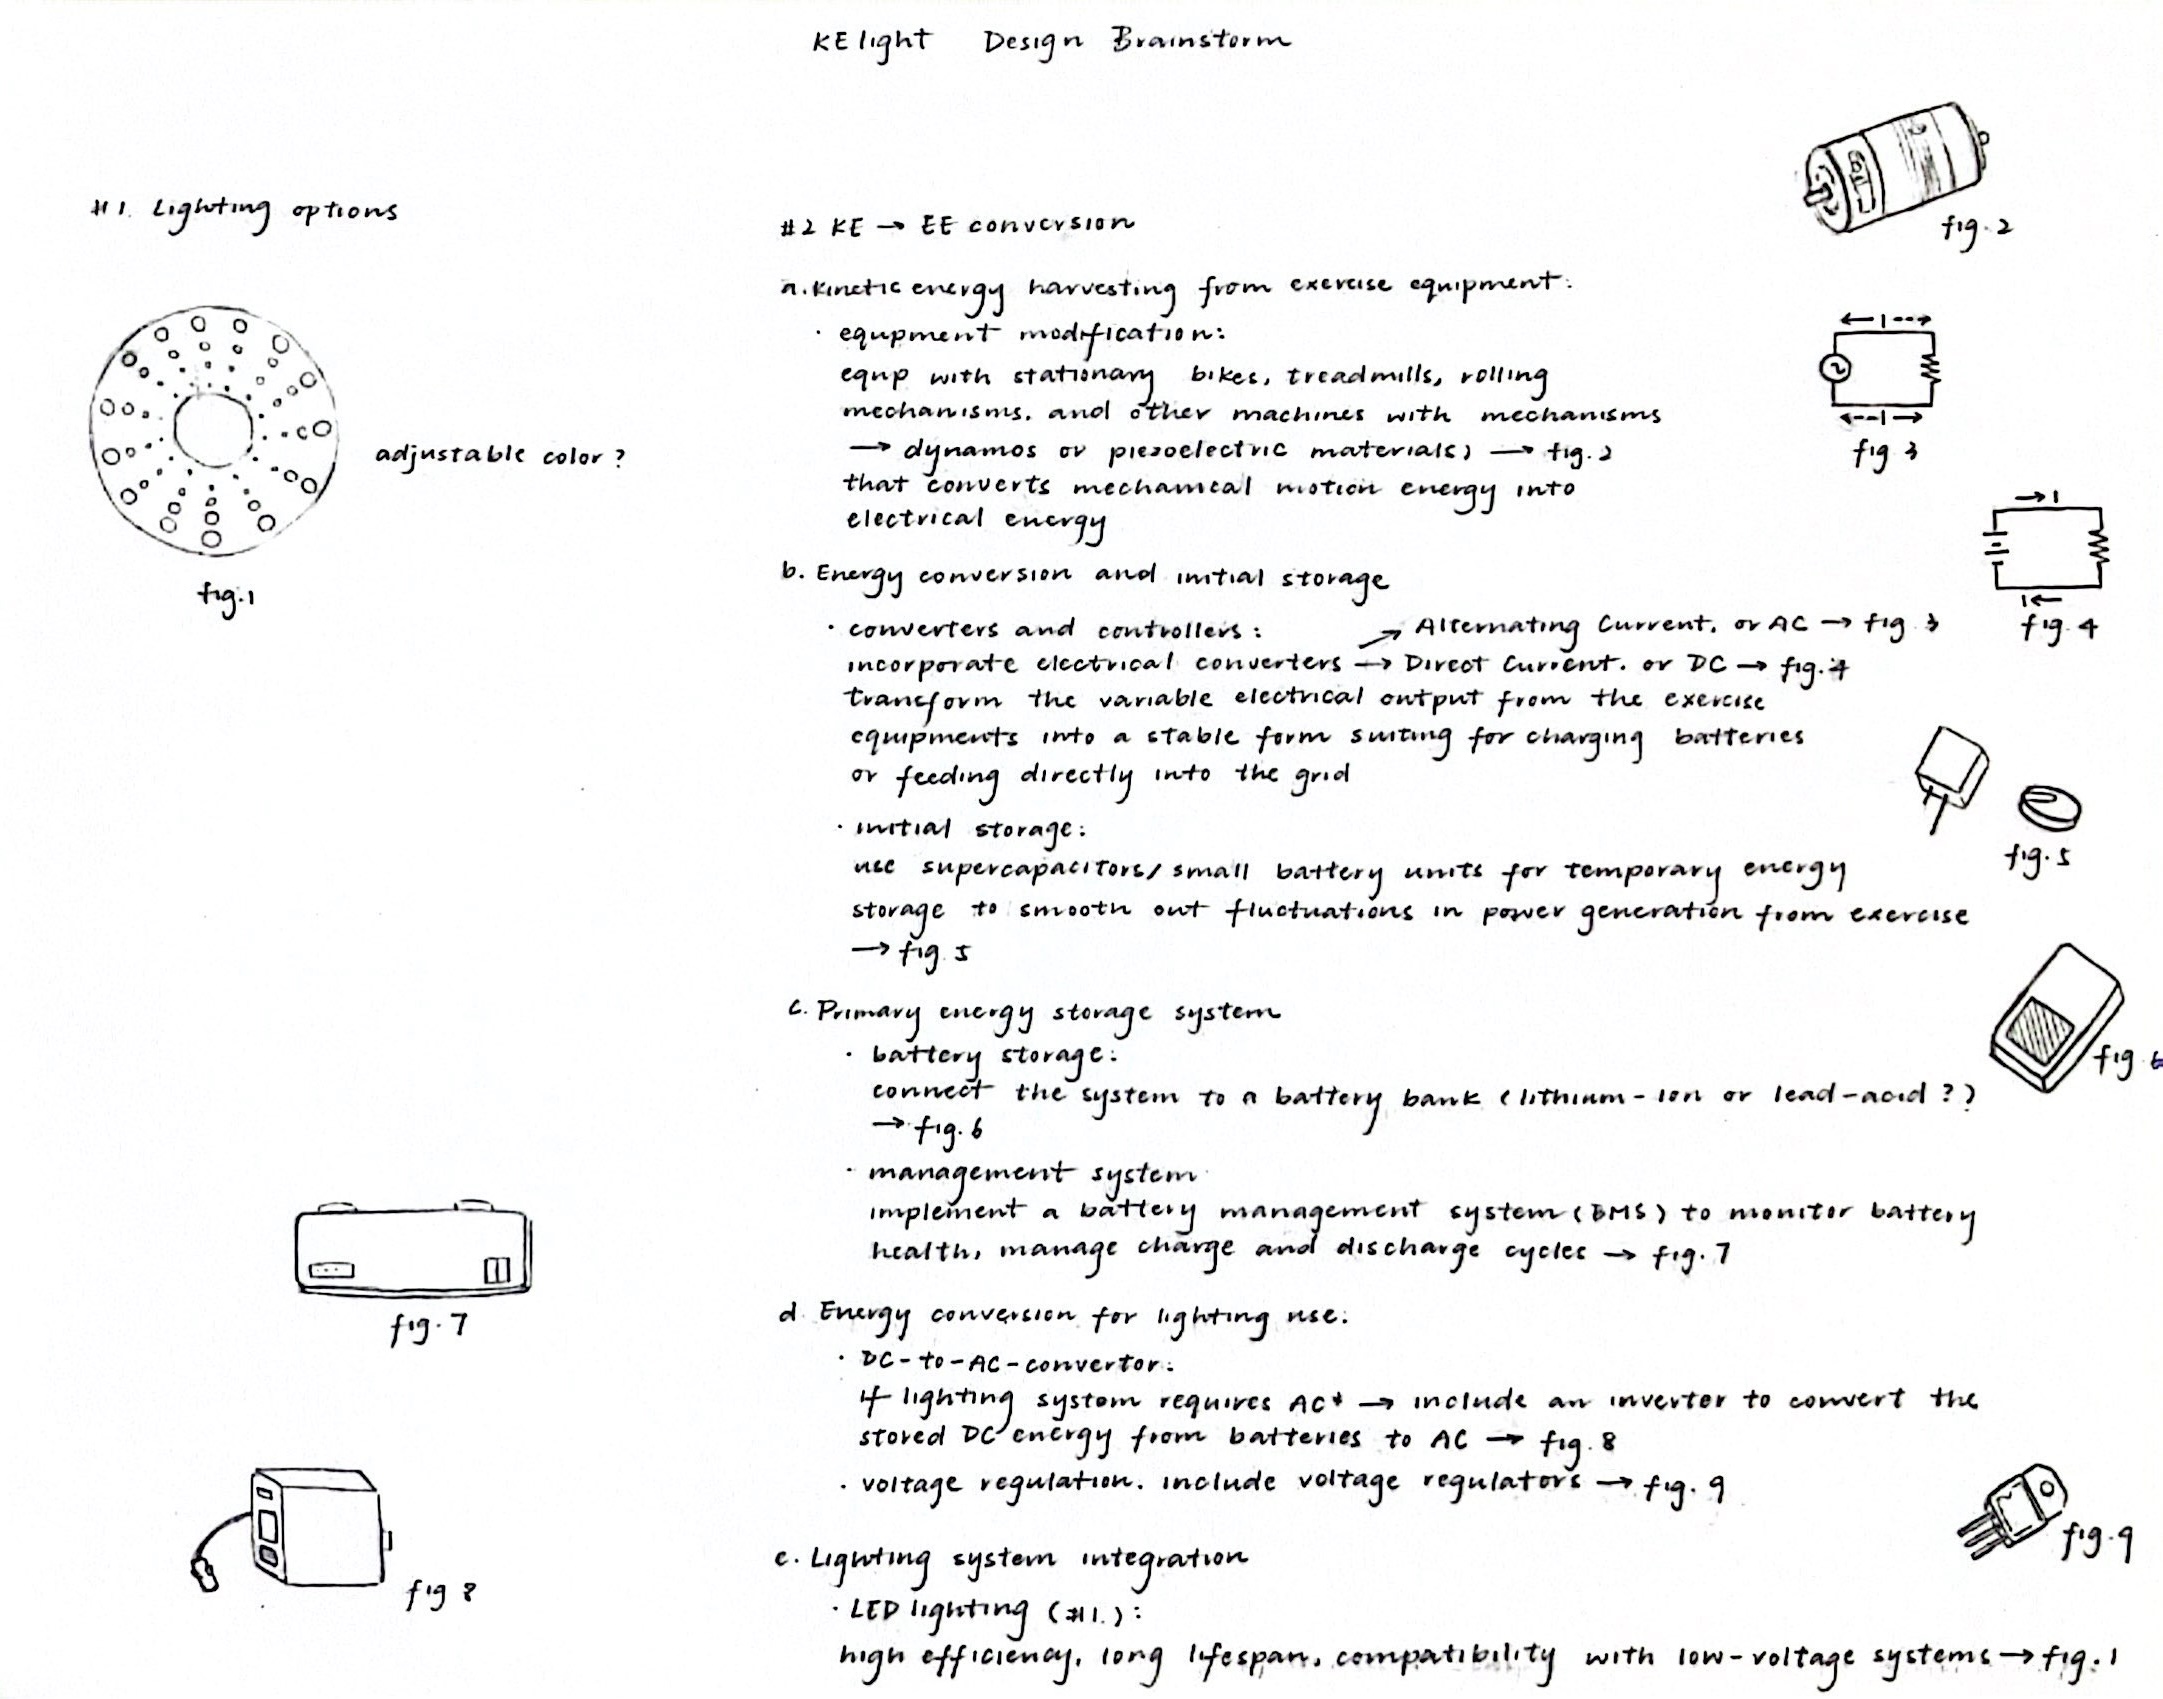 KE light Design Brainstorm
#1. Lighting options
adjustable color?
fig.1
#2 KE → EE conversion
a. Kinetic energy harvesting from exercise equipment:
· equpment modification:
equip with stationary bikes, treadmills, rolling
mechanisms. and other machines with mechanisms
→ dynamos or piezoelectric materials) → fig.2
that converts mechanical motion energy into
electrical energy
fig.2
fig 3
b. Energy conversion and initial storage
· converters and controllers: ↗ Alternating Current. or AC → fig 3
incorporate electrical converters → Direct Current. or DC → fig.4
transform the variable electrical output from the exercise
equipments into a stable form suiting for charging batteries
or feeding directly into the grid
fig.4
· initial storage:
use supercapacitors/small battery units for temporary energy
storage to smooth out fluctuations in power generation from exercise
→ fig 5
fig.5
c. Primary energy storage system
· battery storage:
connect the system to a battery bank (lithium-ion or lead-acid?)
→ fig.6
fig 6
· management system
implement a battery management system (BMS) to monitor battery
health, manage charge and discharge cycles → fig.7
fig.7
d. Energy conversion for lighting use:
· DC-to-AC-convertor:
if lighting system requires AC* → include an invertor to convert the
stored DC energy from batteries to AC → fig.8
· voltage regulation. include voltage regulators → fig.9
fig 8
fig.9
e. Lighting system integration
· LED lighting (#1.):
high efficiency, long lifespan, compatibility with low-voltage systems → fig.1